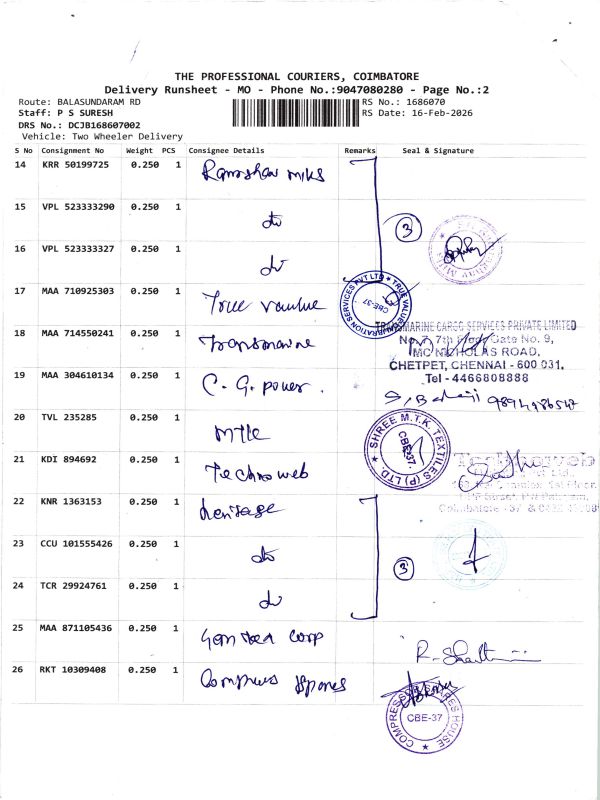 THE PROFESSIONAL COURIERS, COIMBATORE
Delivery Runsheet - MO - Phone No.:9047080280 - Page No.:2
Route: BALASUNDARAM RD
RS No.: 1686070
Staff: P S SURESH
RS Date: 16-Feb-2026
DRS No.: DCJB168607002
Vehicle: Two Wheeler Delivery
S No Consignment No Weight PCS Consignee Details Remarks Seal & Signature
14 KRR 50199725 0.250 1
15 VPL 523333290 0.250 1 do
3
16 VPL 523333327 0.250 1 do
17 MAA 710925303 0.250 1 True
TRUE VALUE
SERVICES PVT LTD
CBE-37
18 MAA 714550241 0.250 1 Transmarine
TRANSMARINE CARGO SERVICES PRIVATE LIMITED
7th Gate No. 9,
MC NICHOLAS ROAD,
CHETPET, CHENNAI - 600 031.
Tel - 4466808888
19 MAA 304610134 0.250 1 C. G. power.
20 TVL 235285 0.250 1 MTK
SHREE M.T.K. TEXTILES (P) LTD.
CBE-37
21 KDI 894692 0.250 1 Technoweb
22 KNR 1363153 0.250 1 heritage
23 CCU 101555426 0.250 1 do
3
24 TCR 29924761 0.250 1 do
25 MAA 871105436 0.250 1 Corp
26 RKT 10309408 0.250 1 Spares
COMPRESS SPARES HOUSE
CBE-37